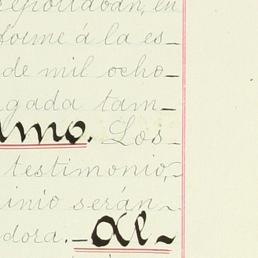 reportaban, en
forme á la es-
de mil ocho-
gada tam-
imo. Los-
testimonio,-
inio serán-
dora.-Al-